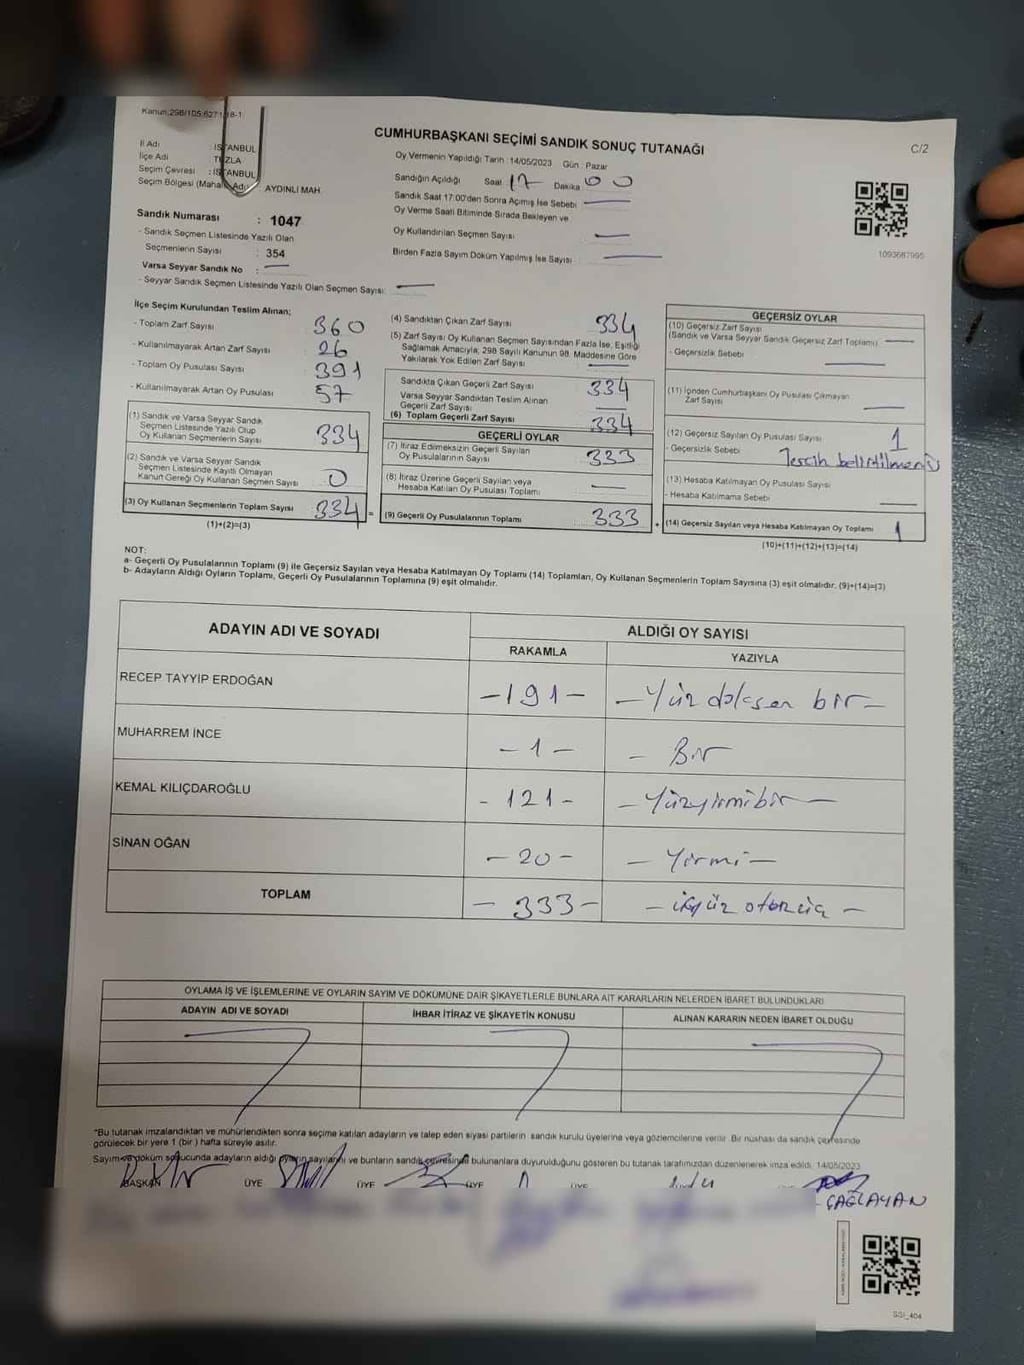 Kanun:298/105,6271/18-1
CUMHURBAŞKANI SEÇİMİ SANDIK SONUÇ TUTANAĞI
C/2
İl Adı : İSTANBUL
İlçe Adı TUZLA
Seçim Çevresi : İSTANBUL
Seçim Bölgesi (Mahalle Adı) AYDINLI MAH.
Oy Vermenin Yapıldığı Tarih : 14/05/2023 Gün : Pazar
Sandığın Açıldığı Saat 17 Dakika 00
Sandık Saat 17:00'den Sonra Açılmış İse Sebebi —
Oy Verme Saati Bitiminde Sırada Bekleyen ve
Oy Kullandırılan Seçmen Sayısı —
Birden Fazla Sayım Döküm Yapılmış İse Sayısı —
1093687995
Sandık Numarası : 1047
- Sandık Seçmen Listesinde Yazılı Olan
Seçmenlerin Sayısı : 354
Varsa Seyyar Sandık No : —
- Seyyar Sandık Seçmen Listesinde Yazılı Olan Seçmen Sayısı: —
İlçe Seçim Kurulundan Teslim Alınan;
- Toplam Zarf Sayısı 360
- Kullanılmayarak Artan Zarf Sayısı 26
- Toplam Oy Pusulası Sayısı 391
- Kullanılmayarak Artan Oy Pusulası 57
(1) Sandık ve Varsa Seyyar Sandık
Seçmen Listesinde Yazılı Olup
Oy Kullanan Seçmenlerin Sayısı 334
(2) Sandık ve Varsa Seyyar Sandık
Seçmen Listesinde Kayıtlı Olmayan
Kanun Gereği Oy Kullanan Seçmen Sayısı 0
(3) Oy Kullanan Seçmenlerin Toplam Sayısı 334 =
(1)+(2)=(3)
(4) Sandıktan Çıkan Zarf Sayısı 334
(5) Zarf Sayısı Oy Kullanan Seçmen Sayısından Fazla İse, Eşitliği
Sağlamak Amacıyla, 298 Sayılı Kanunun 98. Maddesine Göre
Yakılarak Yok Edilen Zarf Sayısı —
Sandıkta Çıkan Geçerli Zarf Sayısı 334
Varsa Seyyar Sandıktan Teslim Alınan
Geçerli Zarf Sayısı —
(6) Toplam Geçerli Zarf Sayısı 334
GEÇERLİ OYLAR
(7) İtiraz Edilmeksizin Geçerli Sayılan
Oy Pusulalarının Sayısı 333
(8) İtiraz Üzerine Geçerli Sayılan veya
Hesaba Katılan Oy Pusulası Toplamı —
(9) Geçerli Oy Pusulalarının Toplamı 333 +
GEÇERSİZ OYLAR
(10) Geçersiz Zarf Sayısı
(Sandık ve Varsa Seyyar Sandık Geçersiz Zarf Toplamı) —
- Geçersizlik Sebebi —
(11) İçinden Cumhurbaşkanı Oy Pusulası Çıkmayan
Zarf Sayısı —
(12) Geçersiz Sayılan Oy Pusulası Sayısı 1
- Geçersizlik Sebebi Tercih belirtilmemiş
(13) Hesaba Katılmayan Oy Pusulası Sayısı
- Hesaba Katılmama Sebebi —
(14) Geçersiz Sayılan veya Hesaba Katılmayan Oy Toplamı 1
(10)+(11)+(12)+(13)=(14)
NOT:
a- Geçerli Oy Pusulalarının Toplamı (9) ile Geçersiz Sayılan veya Hesaba Katılmayan Oy Toplamı (14) Toplamları, Oy Kullanan Seçmenlerin Toplam Sayısına (3) eşit olmalıdır. (9)+(14)=(3)
b- Adayların Aldığı Oyların Toplamı, Geçerli Oy Pusulalarının Toplamına (9) eşit olmalıdır.
ADAYIN ADI VE SOYADI ALDIĞI OY SAYISI
RAKAMLA YAZIYLA
RECEP TAYYİP ERDOĞAN -191- - Yüz doksan bir -
MUHARREM İNCE -1- - Bir
KEMAL KILIÇDAROĞLU -121- - Yüzyirmibir -
SİNAN OĞAN -20- - Yirmi -
TOPLAM -333- - üçyüz otuzüç -
OYLAMA İŞ VE İŞLEMLERİNE VE OYLARIN SAYIM VE DÖKÜMÜNE DAİR ŞİKAYETLERLE BUNLARA AİT KARARLARIN NELERDEN İBARET BULUNDUKLARI
ADAYIN ADI VE SOYADI İHBAR İTİRAZ VE ŞİKAYETİN KONUSU ALINAN KARARIN NEDEN İBARET OLDUĞU
*Bu tutanak imzalandıktan ve mühürlendikten sonra seçime katılan adayların ve talep eden siyasi partilerin sandık kurulu üyelerine veya gözlemcilerine verilir. Bir nüshası da sandık çevresinde
görülecek bir yere 1 (bir) hafta süreyle asılır.
Sayım ve döküm sonucunda adayların aldığı oyların sayılarını ve bunların sandık çevresinde bulunanlara duyurulduğunu gösteren bu tutanak tarafımızdan düzenlenerek imza edildi. 14/05/2023
BAŞKAN ÜYE ÜYE ÜYE ÜYE
ÇAĞLAYAN
SSI_404